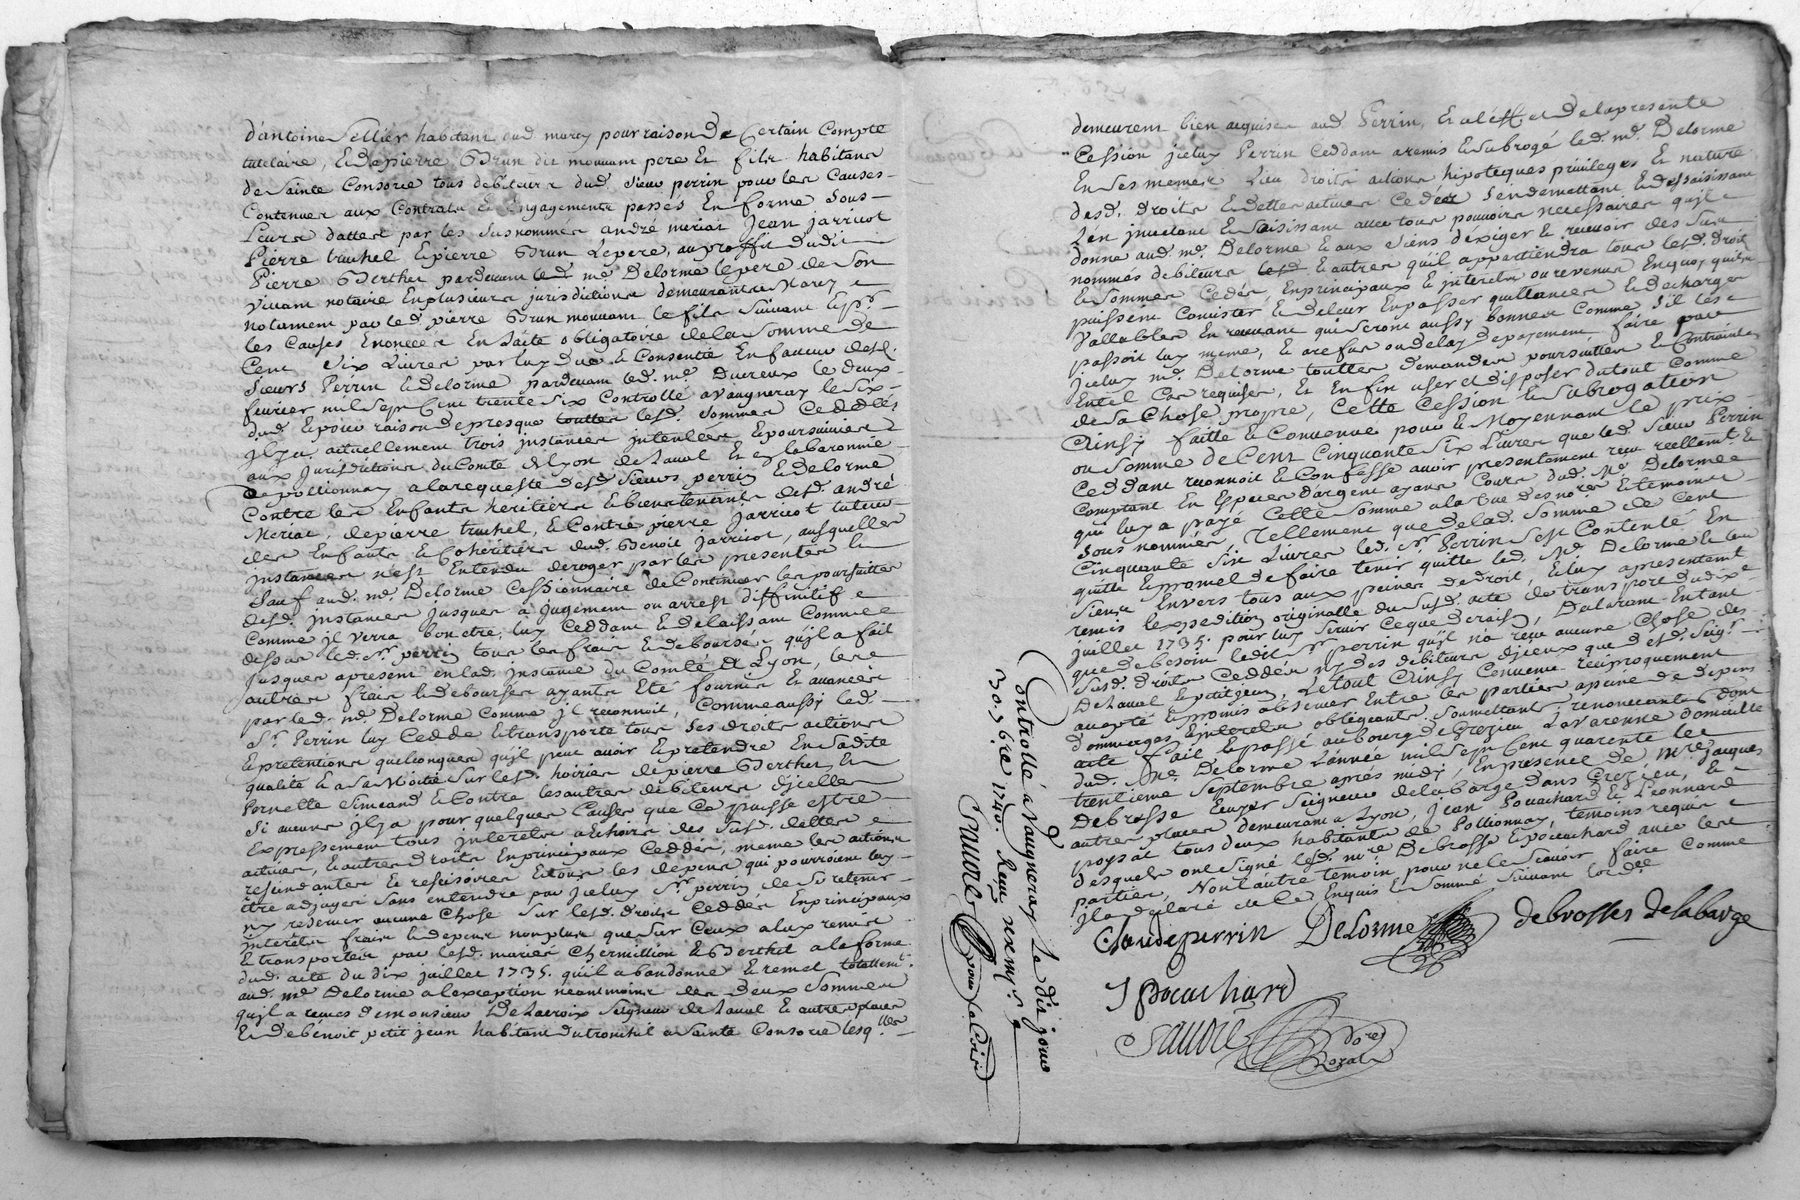 d'antoine Sellier habitant dud. marcy pour raison De Certain Compte
tutelaire, Et de pierre Brun dit mouvant pere Et fils habitans
de Sainte Consorce tous debiteurs dud. Sieur perrin pour les Causes
Contenues aux Contrats & Engagements passés En forme Sous
Leurs dattes par les Susnommés andré meriat Jean jarricot
Pierre truchel Et pierre Brun Le pere, au proffit dudit
Pierre Berthet pardevant led. me. Delorme le pere de Son
Vivant notaire En plusieurs jurisdictions demeurant a Marcy
notament par led. pierre Brun mouvant le fils Suivant Et pr.
les Causes Enoncées En l'acte obligatoire de la Somme de
Cent Six Livres par luy düe & Consentie En faveur desd.
Sieurs Perrin & delorme pardevant led. me. Ducreux le deux
fevrier mil Sept Cent trente Six Controllé a vaugneray le Six
dud. & pour raison de presque touttes lesd. Sommes Ceddées
jl y a actuellement trois jnstances jntentées & poursuivies
aux jurisdictions du Comté de Lyon de Laval Et En la baronnie
de pollionnay a la requeste desd. Sieurs perrin & Delorme
Contre les Enfants heritiers & bientenants desd. andré
Meriat, de pierre truchel, & Contre pierre Jarricot tuteur
des Enfants & Coheritiers dud. Benoit Jarricot, ausquelles
jnstances n'est Entendu deroger par les presentes
Sauf aud. me. Delorme Cessionnaire de Continuer les poursuittes
desd. jnstances jusques a jugement ou arrest diffinitif
Comme jl verra bon etre, luy Ceddant & delaissant Comme
dessus led. Sr. perrin tous les frais & deboursés qu'jl a fait
jusques a present en lad. jnstance du Comté de Lyon, les
autres frais & debourses ayants Eté fournis & avancés
par led. me. Delorme Comme jl reconnoit, Comme aussy led.
Sr. Perrin luy Cedde & transporte tous Ses droits actions
& pretentions quelconques qu'jl peut avoir & pretendre En Sadite
qualité & a Sa Moitié Sur lesd. hoiries de pierre Berthet &
Pernette Simeand & Contre les autres debiteurs d'jcelles
Si aucuns jl y a pour quelques Causes que Ce puisse Estre
Expressement tous jnterets a Echoirs des Susd. dettes
actives, & autres droits En principaux Ceddés, meme les actions
rescindantes & rescisoires & tous les depens qui pourroient luy
être adjugés Sans entendre par jceluy Sr. perrin de Se retenir
ny reserver aucune Chose Sur lesd. droits Ceddés En principaux
jnterêts frais & depens non plus que Sur Ceux a luy remis
& transportés par lesd. mariés Chermillion & Berthet a la forme
dud. acte du dix juillet 1735. qu'jl abandonne & remet totallemt.
aud. me. Delorme a l'exception neantmoins des deux Sommes
qu'jl a reçues de monsieur De Lacroix Seigneur de Laval & autres places
& de benoit petit jean habitant du tronchil a Sainte Consorce lesqlles
demeurent bien acquises aud. Perrin, Et a l'Effet de la presente
Cession jceluy Perrin Ceddant a remis & Subrogé led. me. Delorme
En Ses memes Lieu droits actions hipoteques privileges & nature
desd. droits & dettes actives Cedées S'en demettant & dessaisissant
L'en jnvetant & Saisissant avec tous pouvoirs necessaires qu'jl
donne aud. me. Delorme & aux Siens d'Exiger & recevoir des Sus
nommés debiteurs & autres qu'il appartiendra tous lesd. droits
& Sommes Cedés, En principaux & jnterets ou revenus En quoy qu'ils
puissent Consister & de leur En passer quittances & decharges
Vallables En recevant qui Seront aussy bonnes Comme S'il les
passoit luy meme, & a refus ou delay de payement faire par
Jceluy me. Delorme touttes demandes poursuittes & Contraintes
En tel Cas requises, Et En fin user et disposer du tout Comme
de Sa Chose propre, Cette Cession & Subrogation
Ainsy faitte & Convenue pour & Moyennant le prix
ou Somme de Cent Cinquante Six Livres que led. Sieur Perrin
Ceddant reconnoit & Confesse avoir presentement reçu reellemt. &
Comptant En Especes d'argent ayant Cours dud. Me. Delorme
qui luy a payé Cette Somme a la Vüe des nores. & temoins
Sous nommés, Tellement que de lad. Somme de Cent
Cinquante Six Livres led. Sr. Perrin S'est Contenté En
quitte & promet de faire tenir quitte led. Me. Delorme & les
Siens Envers tous aux peines de droit, & luy a presentement
remis l'expedition originalle du Susd. acte de transport du dixe.
juillet 1735. pour luy Servir Ce que de raison, Declarant En tant
que de besoin ledit Sr. perrin qu'jl n'a reçu aucune Chose des
Susd. droits Ceddés ny des debiteurs d'jceux que desd. Seigr.
De Laval & petit jean, Le tout Ainsy Convenu reciproquement
accepté & promis observer Entre les parties a peine de depens
d'ommages & jnterets obligeants, Soumettants, renonceants, dont
acte fait & passé au bourg de Grezieu Lavarenne domicille
dud. Me. Delorme L'année mil Sept Cent quarente le
trentieme Septembre après midy, En presence de Mre. jacques
Debrosse Ecuyer Seigneur de la barge dans Grezieu, &
autres places demeurant a Lyon, Jean Pouachard & Leonnard
poysat tous deux habitants de Pollionnay, temoins requis
desquels ont Signé lesd. mre. De Brosse & pouachard avec les
parties, Non l'autre temoin pour ne le Scavoir faire Comme
jl a declaré de Ce Enquis & Sommé Suivant l'ordce
Claude perrin Delorme debrosses delabarge
J poüachard
Sauvre nore. Royal
Controllé a Vaugneray Le dit jour
30. 7bre 1740. Reçu
Sauvre pour la Coisd